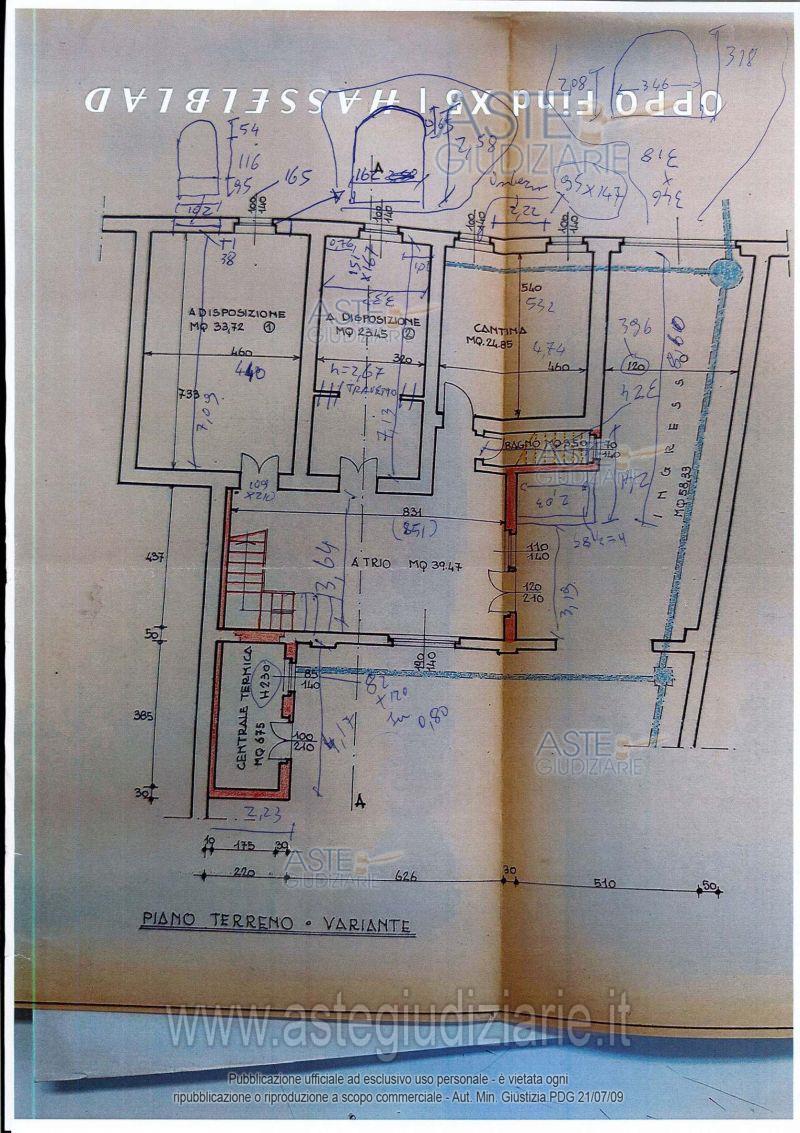 OPPO Find X5 | HASSELBLAD
ASTE GIUDIZIARIE
318
208
346
346
x
318
54
116
95
165
102
38
A
162
2,58
222
147x56
100
140
100
140
100
140
100
140
A DISPOSIZIONE
MQ 33,72 ①
460
440
733
7,09
0,76
151
x167
3,33
A DISPOSIZIONE
MQ 23.45 ②
320
h=2,67
TRAVETTO
7,13
540
532
CANTINA
MQ. 24.85
4,74
460
396
120
324
8,60
INGRESSO
MQ 58,33
BAGNO MQ 3.50
70
140
2,03
109
x210
831
(851)
437
3,64
A TRIO MQ 39.47
110
140
120
210
3,13
50
190
140
CENTRALE TERMICA
MQ 6.75
H 230
85
140
82
x120
0,80
385
100
210
4,17
A
30
2,23
10
175
30
220
626
30
510
50
PIANO TERRENO • VARIANTE
www.astegiudiziarie.it
Pubblicazione ufficiale ad esclusivo uso personale - è vietata ogni
ripubblicazione o riproduzione a scopo commerciale - Aut. Min. Giustizia PDG 21/07/09